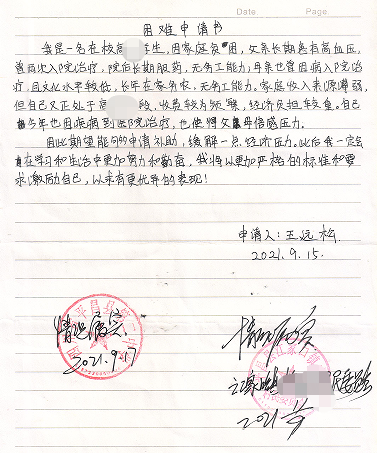 Date Page
困难申请书
我是一名在校高 生，因家庭贫困，父亲长期患有高血压，
曾两次入院治疗，院后长期服药，无劳工能力；母亲也曾因病入院治疗，
且文化水平较低，长年在家务农，无劳工能力。家庭收入来源薄弱，
但自己又正处于高 段，收费较为频繁，经济负担较重，自己
今年也因疾病到医院治疗，也使得父母倍感压力。
因此期望能向申请补助，缓解一点经济压力。此后我一定会
在学习和生活中更加努力和勤奋，我将以更加严格的标准和要
求激励自己，以求有更优异的表现！
申请人：王远松
2021.9.15.
情况属实
2021.9.17
情况属实
2021